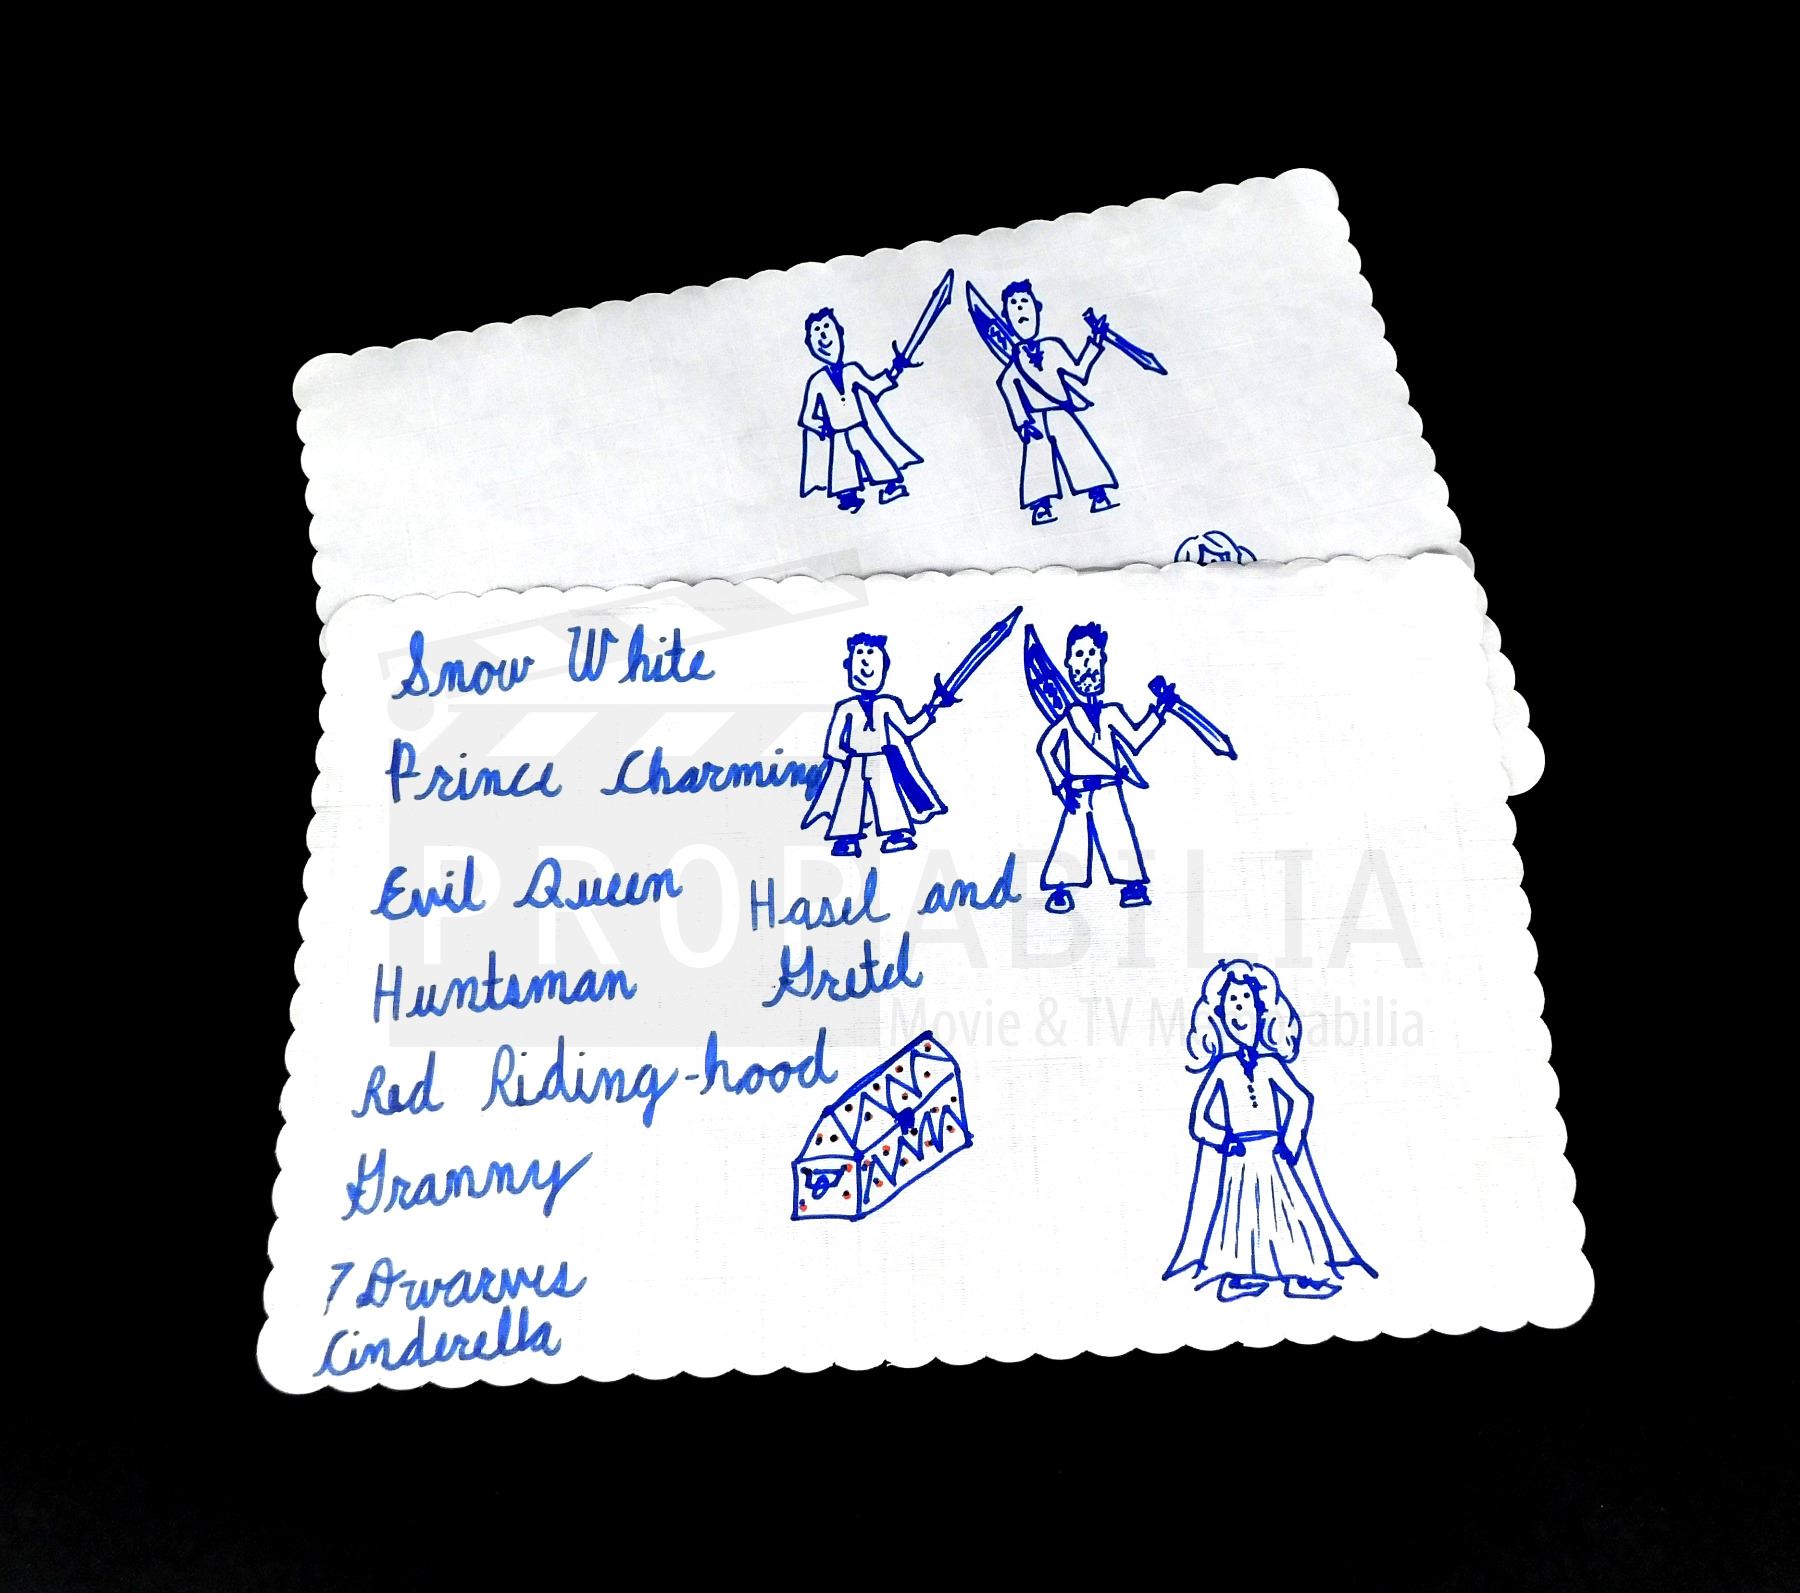 Snow White
Prince Charming
Evil Queen
Hasel and
Huntsman
Gretel
Red Riding-hood
Granny
7 Dwarves
Cinderella
PROPABILIA
Movie & TV Memorabilia